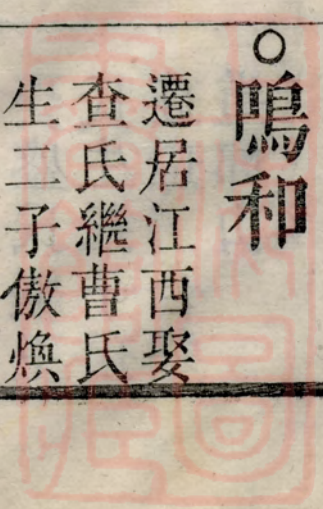 ○鳴和
遷居江西娶
查氏繼曹氏
生二子傲煥